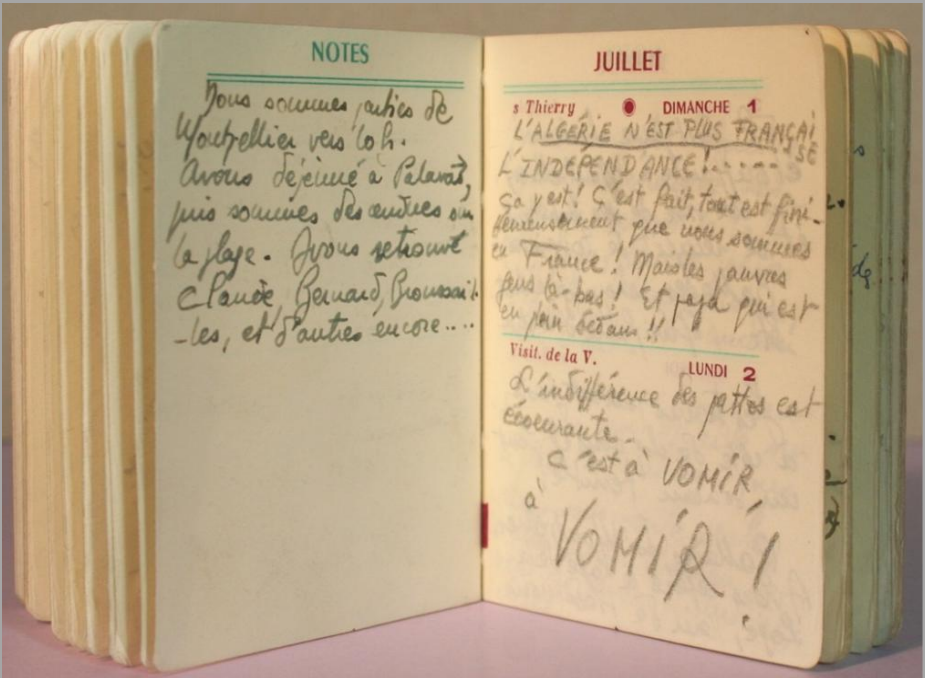 NOTES
Nous sommes parties de
Montpellier vers 10h.
Avons déjeuné à Palavas,
puis sommes descendues sur
la plage. Avons retrouvé
Claude, Bernard, Broussail-
-les, et d'autres encore....
JUILLET
s Thierry DIMANCHE 1
L'ALGÉRIE N'EST PLUS FRANÇAI
SE
L'INDÉPENDANCE!.....
ça y est! C'est fait, tout est fini-
Heureusement que nous sommes
en France! Mais les pauvres
gens là-bas! Et papa qui est
en plein bedans!!
Visit. de la V.
LUNDI 2
L'indifférence des pattos est
écoeurante.
C'est à VOMIR,
à
VOMIR!